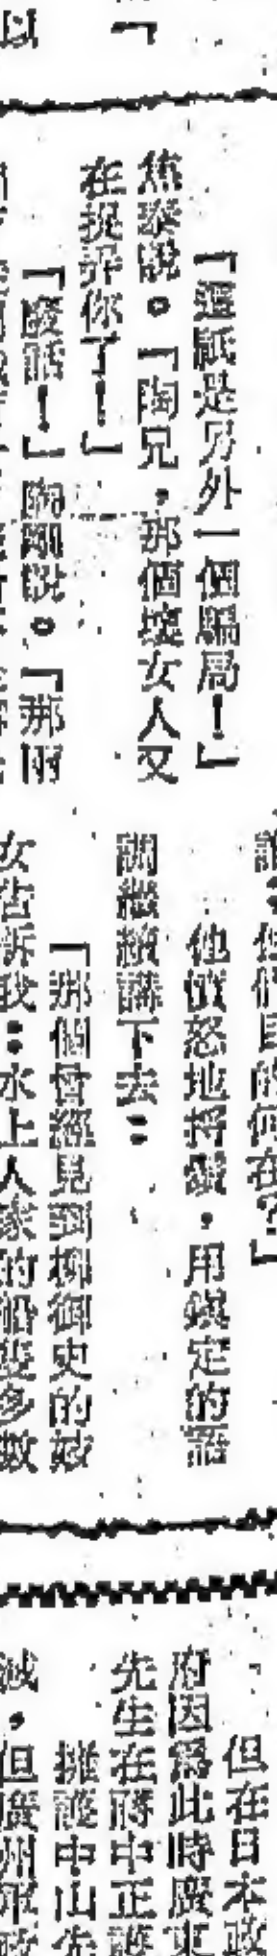 「這祇是另外一個騙局！」
焦泰說。「陶兄，那個壞女人又
在捉弄你了！」
「廢話！」陶剛說。「那兩
他們目的何在？」
他憤怒地捋鬚，用鎮定的語
調繼續講下去：
「那個曾經見到柳御史的妓
女告訴我：水上人家的船隻多數
但在日本政
府因爲此時廣東
先生在蔣中正護
擁護中山先
滅，但廣州軍政